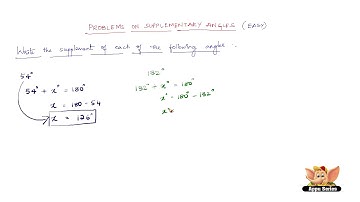 PROBLEMS ON SUPPLEMENTARY ANGLES (EASY)
Write the supplement of each of the following angles :-
54°
54° + x° = 180°
x = 180 - 54
x = 126°
132°
132° + x° = 180°
x° = 180° - 132°
x°=
Appu Series